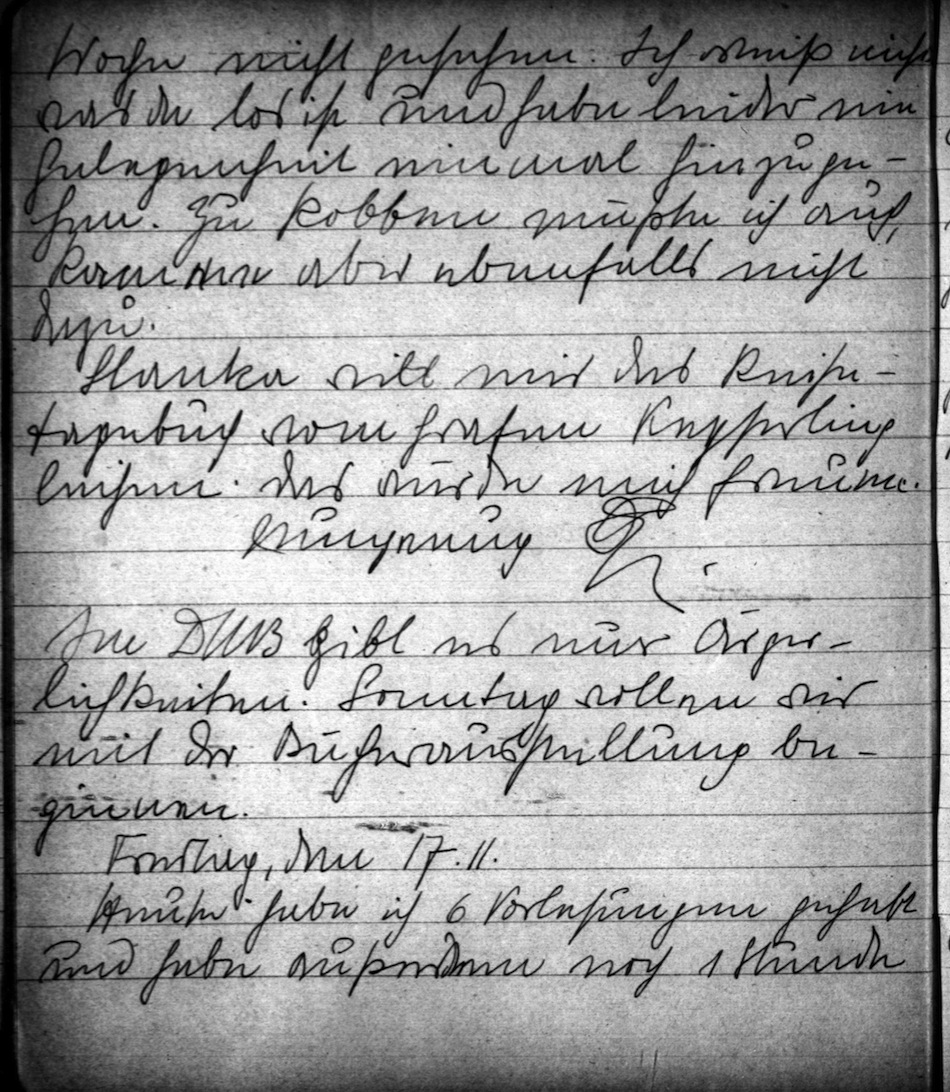 Woche nicht gesehen. Ich weiß nicht
was da los ist und habe leider nie
Gelegenheit einmal hinzuge-
hen. Zu Kobben müßte ich auch,
kam aber ebenfalls nicht
dazu.
Slanka will mir das Reise-
tagebuch vom Grafen Keyserling
leihen. Das würde mich freuen.
Im DHB gibt es nur Ärger-
lichkeiten. Sonntag wollen wir
mit der Bücherausstellung be-
ginnen.
Freitag, den 17.11.
Heute habe ich 6 Vorlesungen gehabt
und habe außerdem noch 1 Stunde